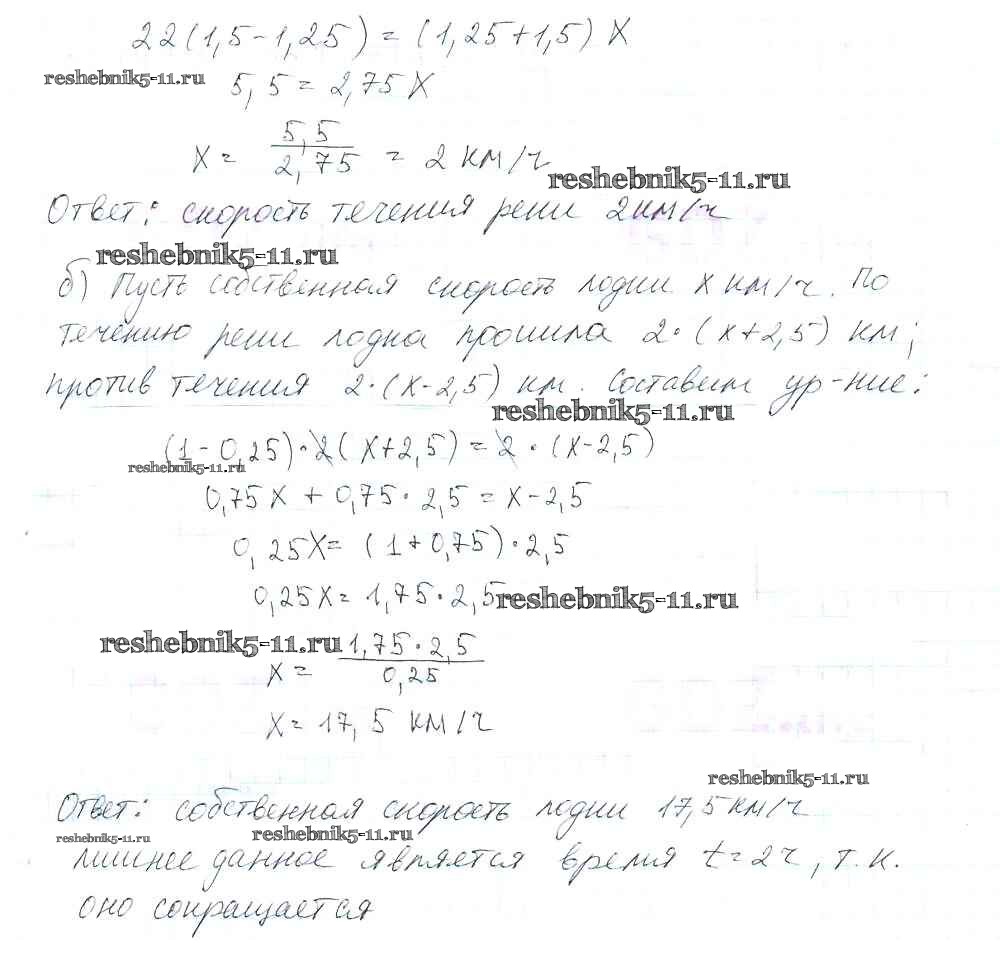 22(1,5-1,25) = (1,25+1,5) X
reshebnik5-11.ru
5,5 = 2,75X
X = 5,5 / 2,75 = 2 км/ч
reshebnik5-11.ru
Ответ: скорость течения реки 2 км/ч
reshebnik5-11.ru
б) Пусть собственная скорость лодки x км/ч. По
течению реки лодка прошла 2·(x+2,5) км;
против течения 2·(x-2,5) км. Составим ур-ние:
reshebnik5-11.ru
(1-0,25)·2(x+2,5) = 2·(x-2,5)
reshebnik5-11.ru
0,75X + 0,75·2,5 = X-2,5
0,25X = (1+0,75)·2,5
0,25X = 1,75·2,5
reshebnik5-11.ru
reshebnik5-11.ru
X = 1,75·2,5 / 0,25
X = 17,5 км/ч
reshebnik5-11.ru
Ответ: собственная скорость лодки 17,5 км/ч
reshebnik5-11.ru
reshebnik5-11.ru
лишнее данное является время t=2ч, т.к.
оно сокращается